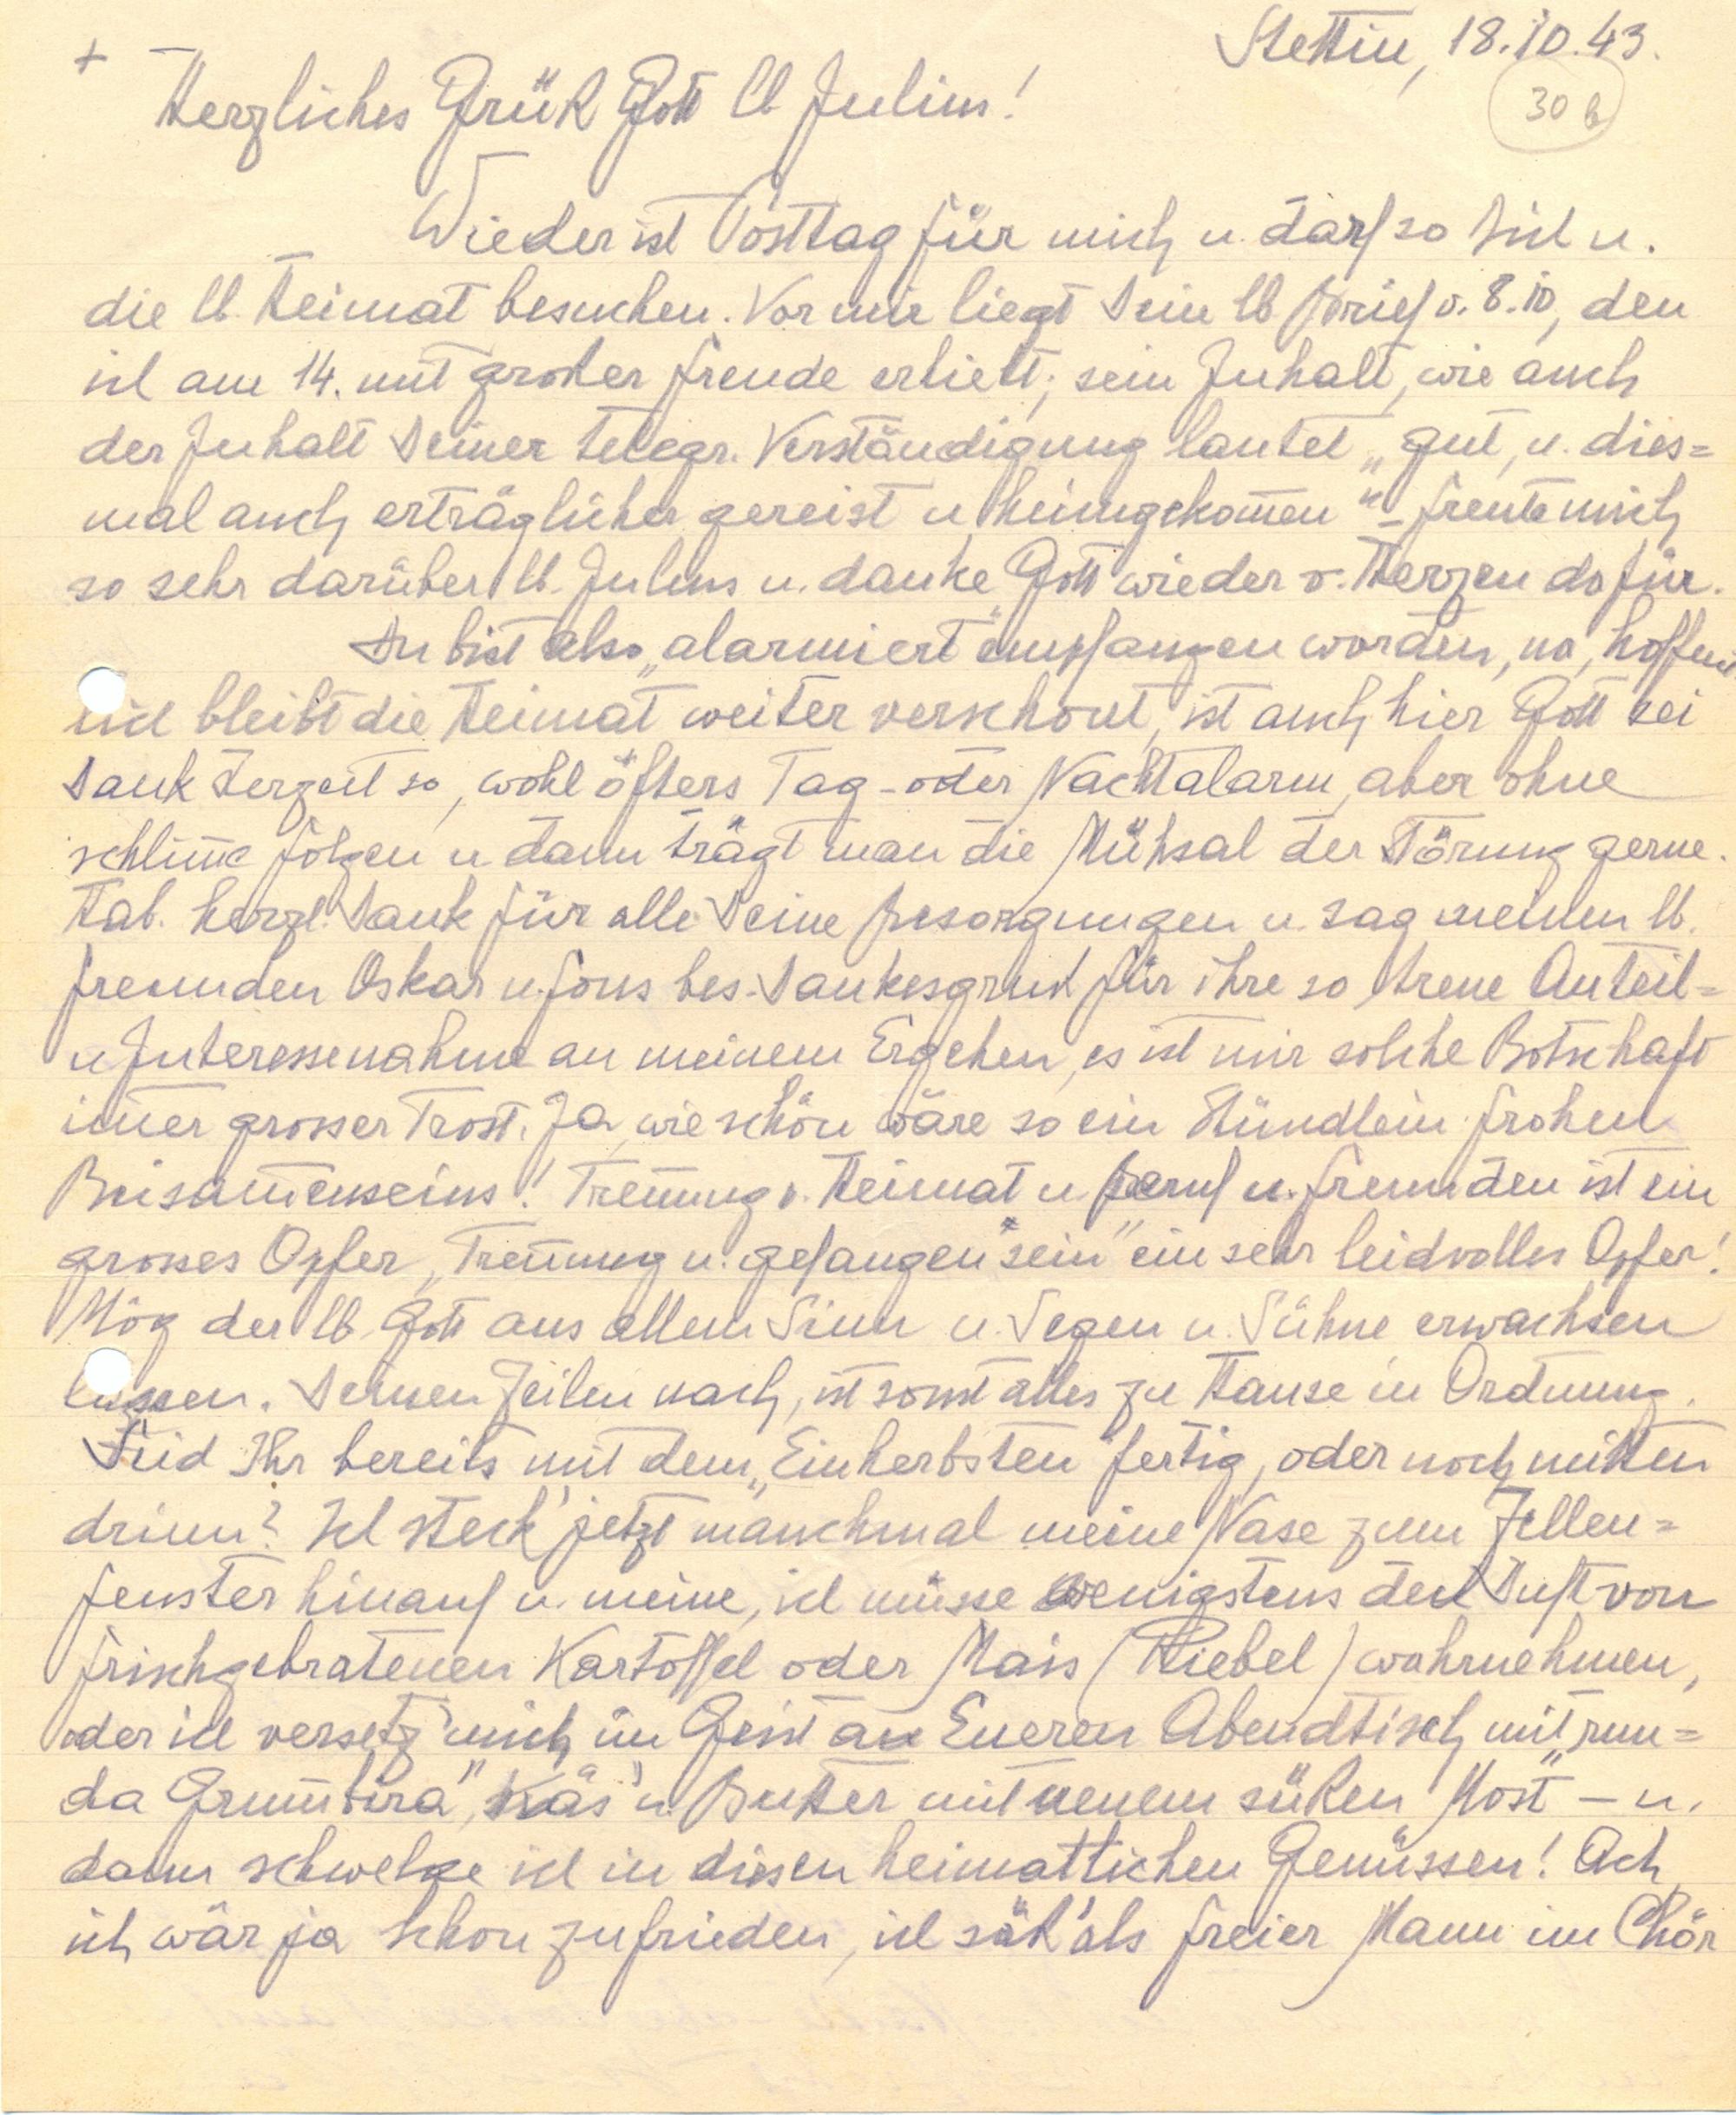 Stettin, 18.10.43.
30 b
+ Herzliches Grüß Gott lb Julius!
Wieder ist Posttag für mich u. darf so Dich u.
die lb. Heimat besuchen. Vor mir liegt Dein lb Brief v. 8.10, den
ich am 14. mit großer Freude erhielt; sein Inhalt, wie auch
der Inhalt Deiner telegr. Verständigung lautet „gut, u. dies=
mal auch erträglicher gereist u. heimgekom̄en" – freute mich
so sehr darüber lb. Julius u. danke Gott wieder v. Herzen dafür.
Du bist also „alarmiert" empfangen worden, na, hoffent
lich bleibt die Heimat weiter verschont, ist auch hier Gott sei
Dank derzeit so, wohl öfters Tag- oder Nachtalarm, aber ohne
schlim̄e Folgen u dann trägt man die Mühsal der Störung gerne.
Hab. herzl. Dank für alle Deine Besorgungen u. sag meinen lb.
Freunden Oskar u. Fons bes. Dankesgruß für ihre so treue Anteil=
u Interessenahme an meinem Ergehen, es ist mir solche Botschaft
im̄er grosser Trost. Ja, wie schön wäre so ein Stündlein frohen
Beisam̄enseins! Tren̄ung v. Heimat u Beruf u. Freunden ist ein
grosses Opfer, „Tren̄ung u. gefangen sein" ein sehr leidvolles Opfer!
Mög der lb. Gott aus allem Sinn u. Segen u. Sühne erwachsen
lassen. Deinen Zeilen nach, ist sonst alles zu Hause in Ordnung.
Seid Ihr bereits mit dem „Einherbsten" fertig, oder noch mitten
drinn? Ich steck' jetzt manchmal meine Nase zum Zellen=
fenster hinauf u. meine, ich müsse wenigstens den Duft von
frischgebratenen Kartoffel oder Mais (Riebel) wahrnehmen,
oder ich versetz' mich im Geist an Eueren Abendtisch mit „sun=
da Grum̄bira", Käs' u. Butter mit neuem süßen „Most" – u.
dann schwelge ich in diesen heimatlichen Genüssen! Ach,
ich wär ja schon zufrieden, ich säß' als freier Mann im Chör